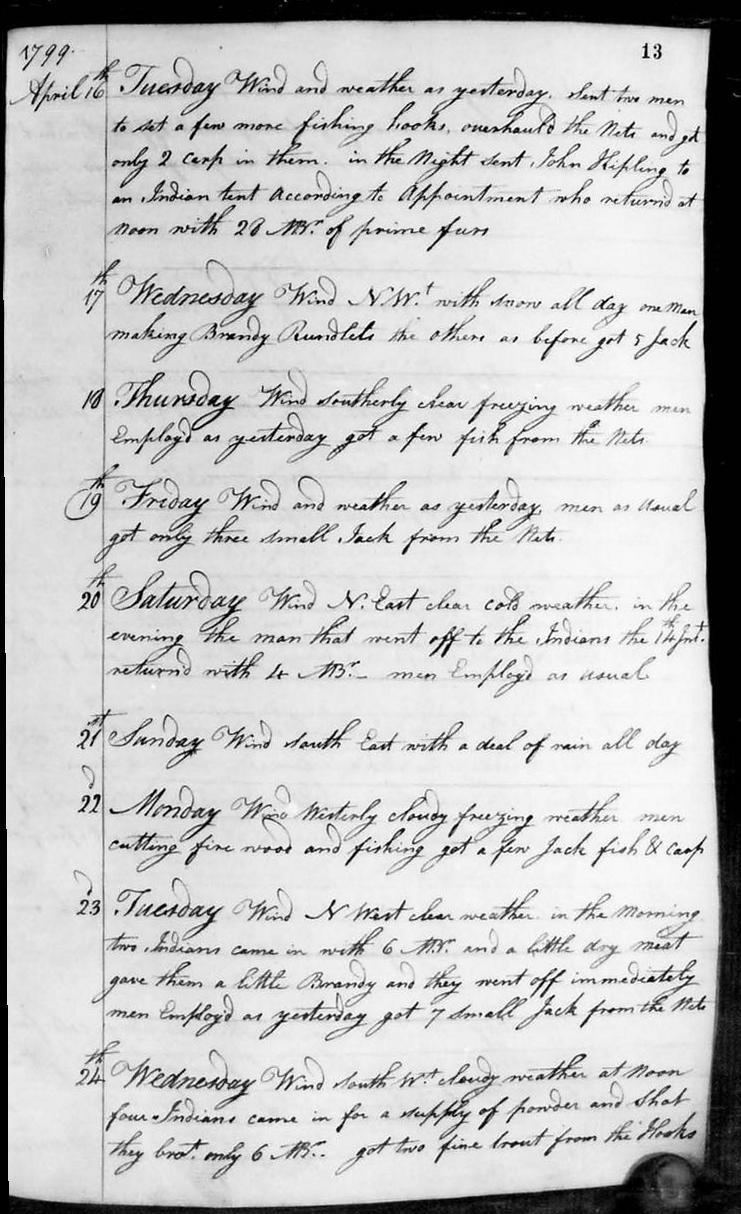 1799. 13
April 16th Tuesday Wind and weather as yesterday. sent two men
to set a few more fishing hooks, overhauld the Nets and got
only 2 Carp in them. in the Night sent John Kipling to
an Indian tent According to Appointment who returnd at
Noon with 28 MBr. of prime furs
17th Wednesday Wind N.W.t with snow all day one man
making Brandy Rundlets the others as before got 5 Jack
18 Thursday Wind southerly clear freezing weather men
Employd as yesterday got a few fish from the Nets
19th Friday Wind and weather as yesterday, men as Usual
got only three small Jack from the Nets.
20th Saturday Wind N. East clear cold weather. in the
evening the man that went off to the Indians the 14th Inst.
returnd with 4 MBr. men Employd as usual
21st Sunday Wind south East with a deal of rain all day
22d Monday Wind Westerly cloudy freezing weather men
cutting fire wood and fishing got a few Jack fish & carp
23d Tuesday Wind N West clear weather. in the Morning
two Indians came in with 6 MBr. and a little dry meat
gave them a little Brandy and they went off immediately
men Employd as yesterday got 7 small Jack from the Nets
24th Wednesday Wind south Wt. cloudy weather at Noon
four Indians came in for a supply of powder and Shot
they brot. only 6 MBr. got two fine trout from the Hooks